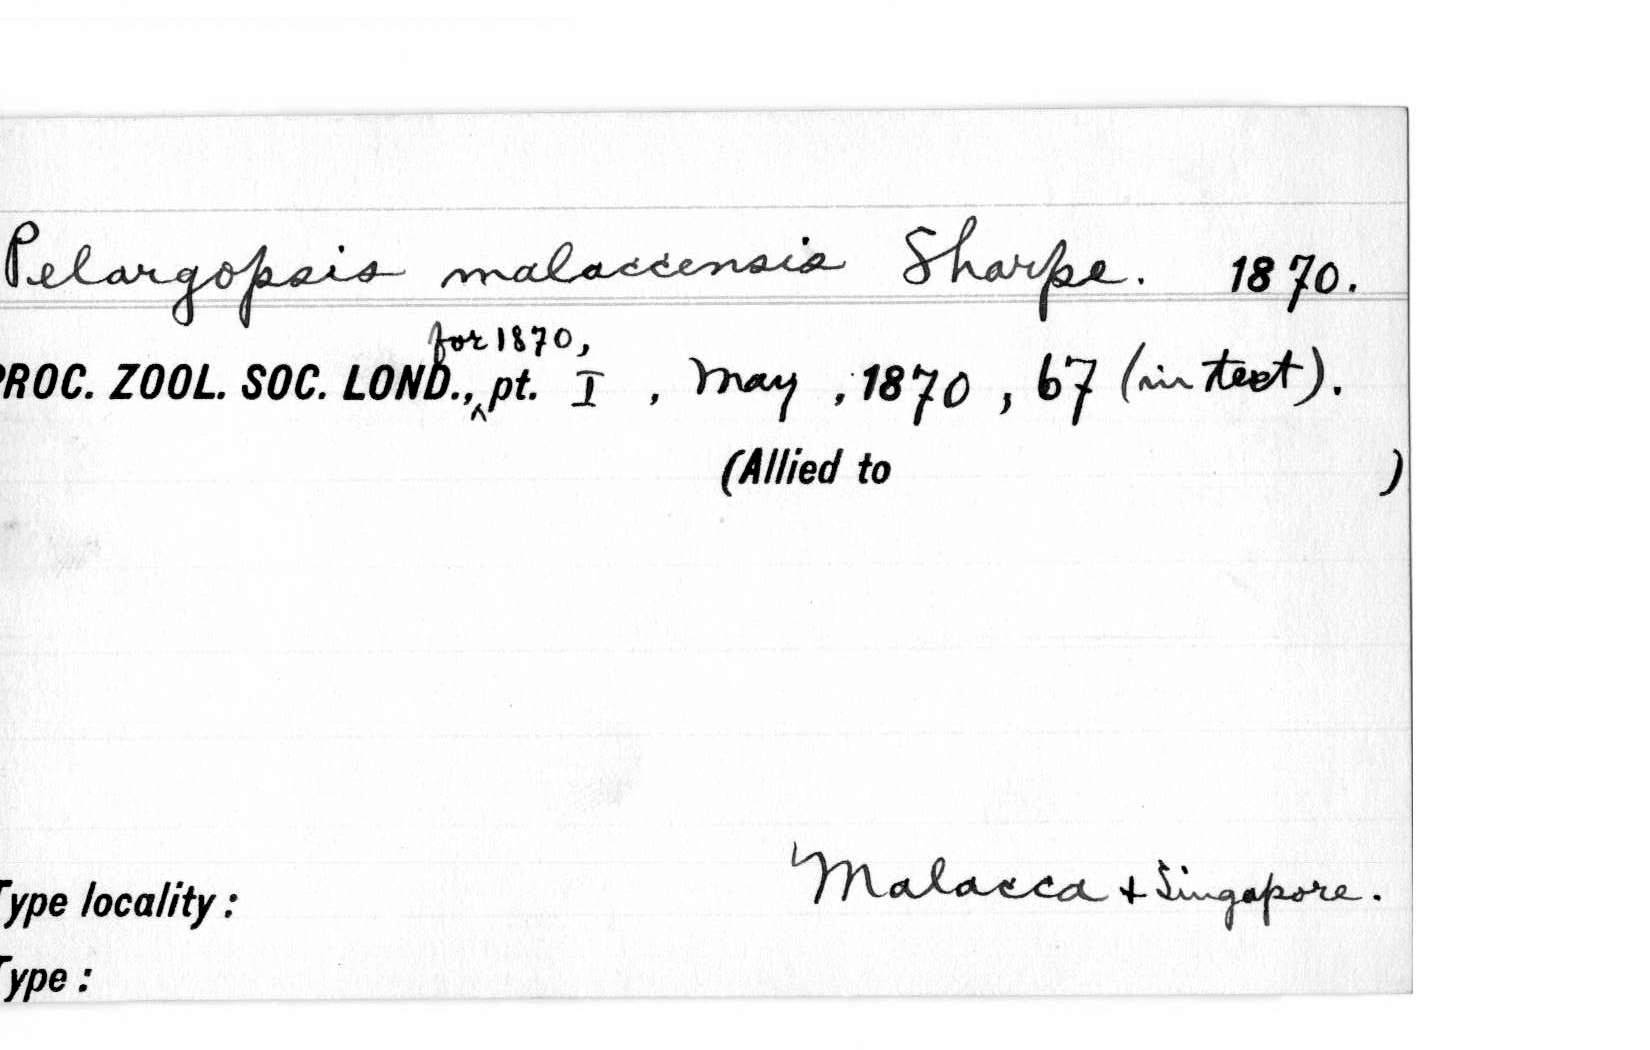 Pelargopsis malaccensis Sharpe. 1870.
for 1870,
PROC. ZOOL. SOC. LOND., ^ pt. I , May , 1870 , 67 (in text).
(Allied to )
Malacca + Singapore.
Type locality :
Type :